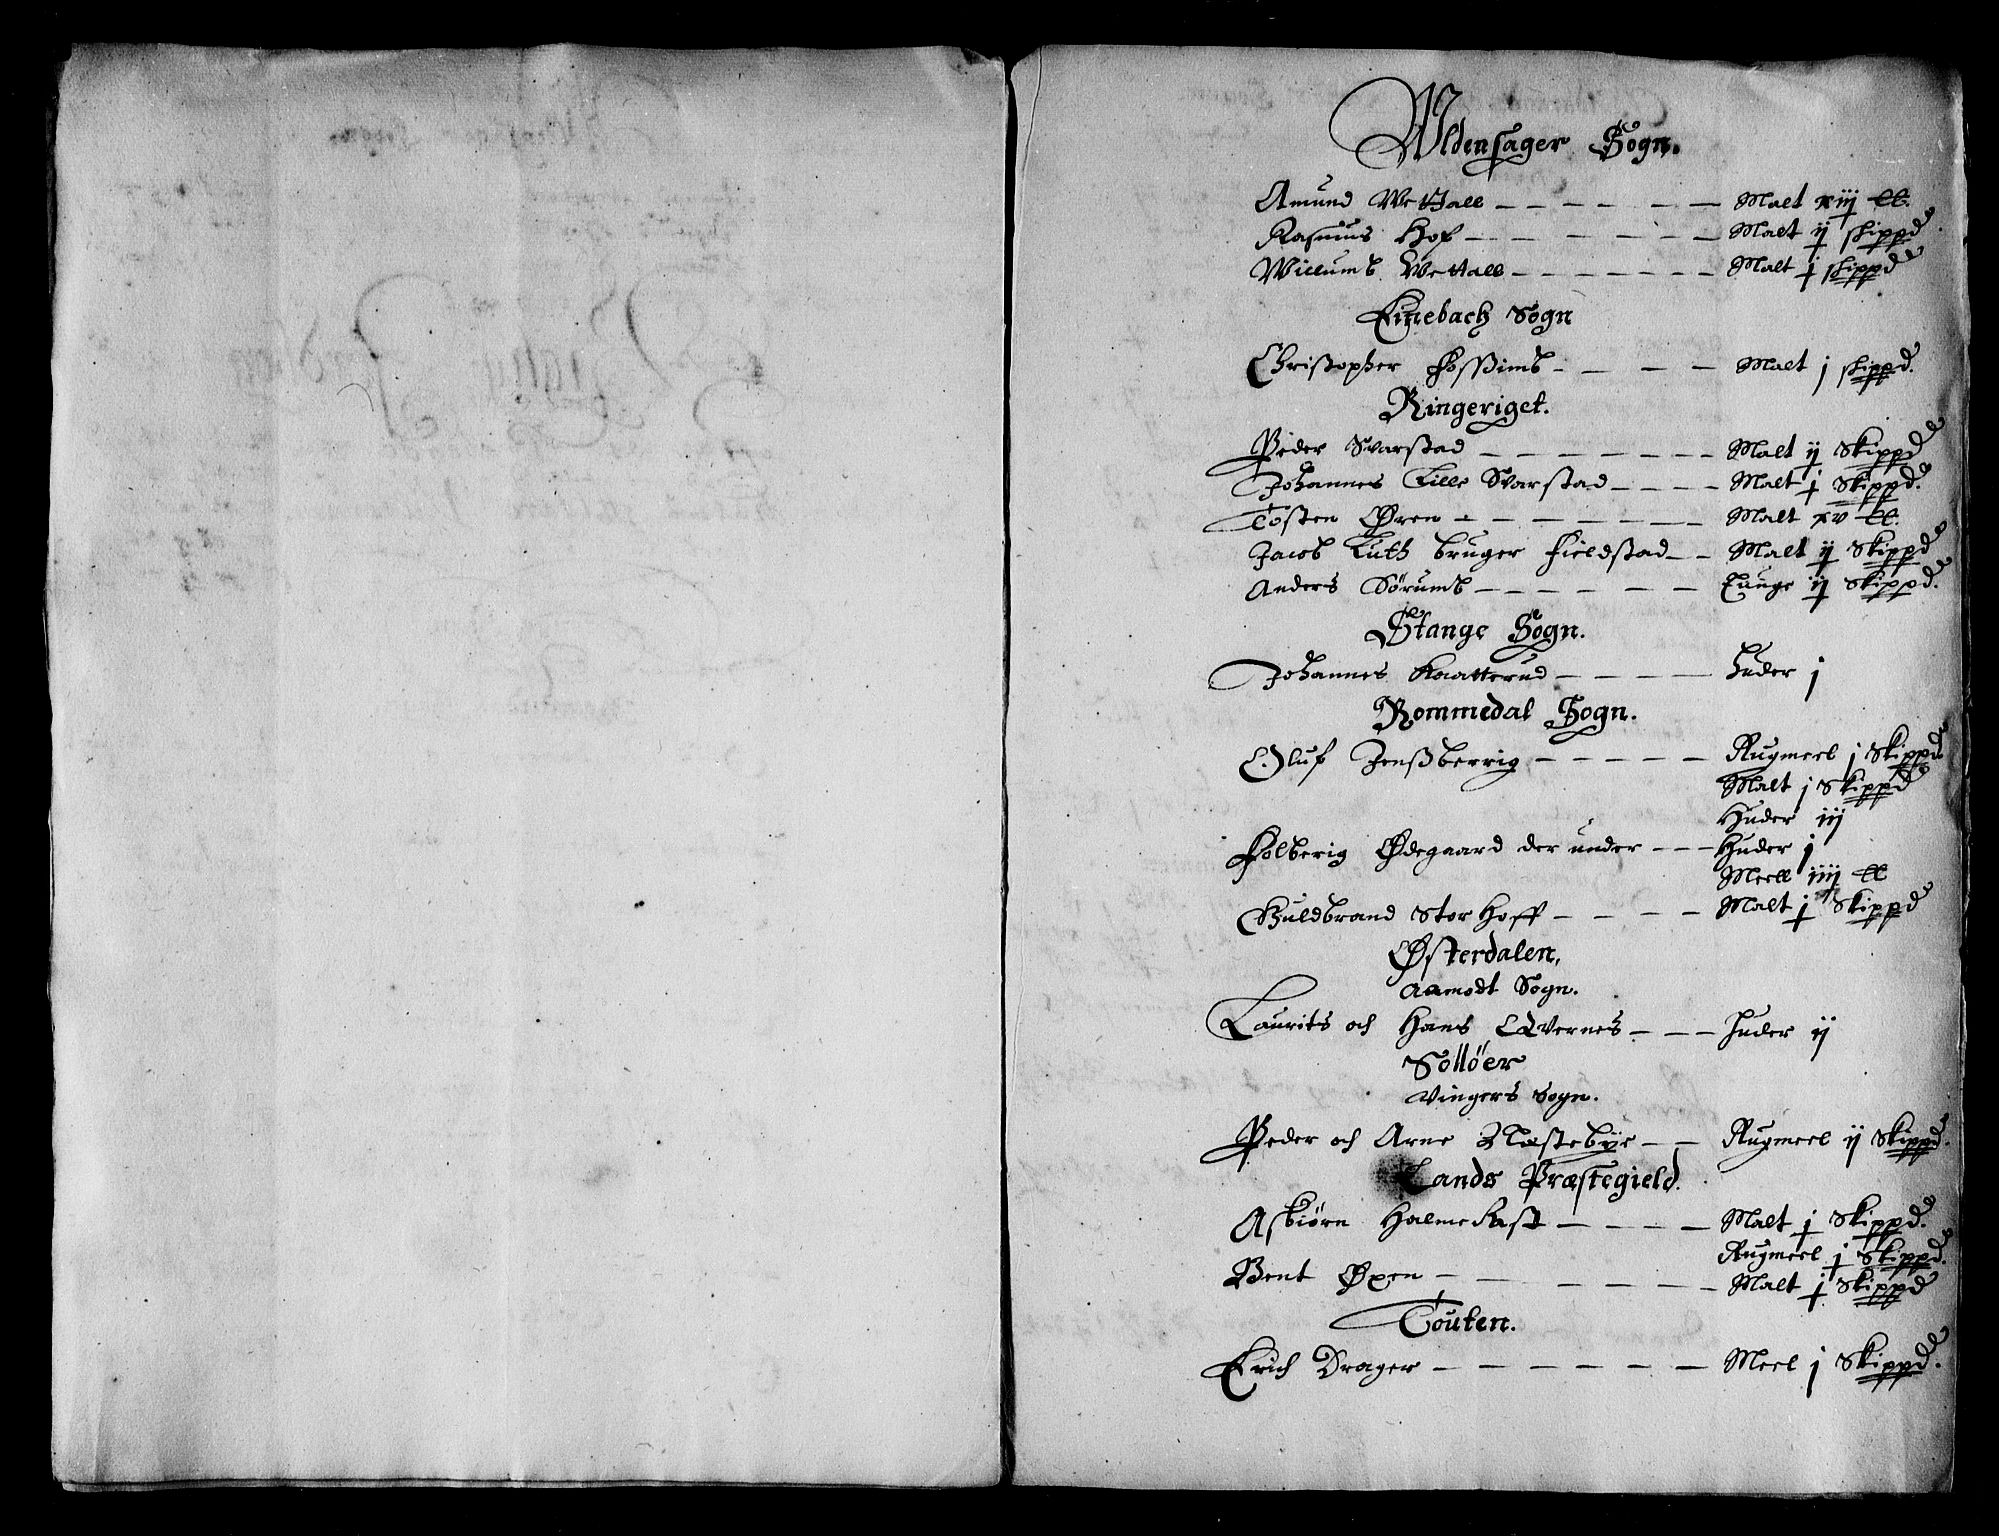 Uldensager Sogn.
Amund Wettall — Malt xiij ℔.
Rasmus Hof — Malt ij skippd
Willumb Wettall — Malt j skippd
Einebach Sogn
Christopher Fossimb — Malt j skippd.
Ringeriget.
Peder Svarstad — Malt ij Skippd
Johannes Lille Svarstad — Malt j Skippd.
Tosten Øren — Malt xv ℔.
Jacob Luth bruger Fieldstad — Malt ij Skippd
Anders Sørumb — Tunge ij Skippd.
Stange Sogn.
Johannes Kaatterud — Huder j
Rommedal Sogn.
Oluf Jenßberrig — Rugmeel j Skippd
Malt j Skippd
Huder iij
Folberig Ødegaard der under — Huder j
Meell iiij ℔
Guldbrand Stor Hoff — Malt j Skippd
Østerdalen,
Aamodt Sogn.
Laurits och Hans Qvernes — Huder ij
Sollöer
Vingers Sogn.
Peder och Arne Næstebye — Rugmeel ij Skippd.
Lands Præstegield.
Asbiörn Halmekast — Malt j Skippd.
Rugmeel j Skippd.
Bent Øxen — Malt j Skippd
Touten.
Erich Drager — Meel j Skippd.